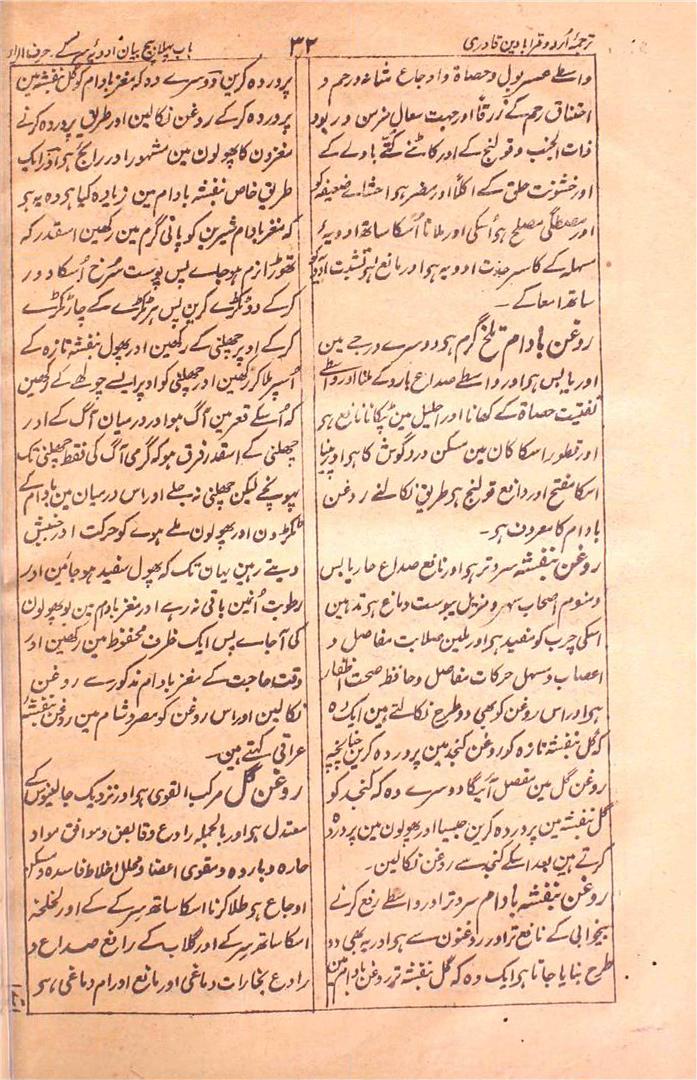 ترجمۂ اُردو قرابادین قادری
۳۲
باب پہلا بیچ بیان ادویۂ سر کے حرف الراء
واسطے عسر بول و حصاۃ و اوجاع مثانہ و رحم و
اختناق رحم کے زرقًا اور جہت سعال مزمن و ربو و
ذات الجنب و قولنج کے اور کاٹنے کتّے باولے کے
اور خشونت حلق کے اکلًا اور مضر ہو احشاے ضعیفہ کو
اور مصطگی مصلح ہو اُسکی اور ملانا اُسکا ساتھ ادویۂ
سہلہ کے کاسر حدت ادویہ ہو اور مانع ہو تشبث ادویہ کو
ساتھ امعا کے۔
روغن بادام تلخ گرم ہو دوسرے درجے مین
اور یابس ہو اور واسطے صداع بارد کے ملنا اور واسطے
تفتیت حصاۃ کے کھانا اور احلیل مین ٹپکانا نافع ہو
اور قطور اسکا کان مین مسکن درد گوش کا ہو اور پینا
اسکا مفتح اور دافع قولنج ہو طریق نکالنے روغن
بادام کا معروف ہو۔
روغن بنفشہ سرد تر ہو اور نافع صداع حار یابس
و منوم اصحاب سہر و مزیل یبوست دماغ ہو تدہین
اسکی جرب کو مفید ہو اور ملین صلابت مفاصل و
اعصاب و مسہل حرکات مفاصل و حافظ صحت اظفار
ہو اور اس روغن کو بھی دو طرح نکالتے ہین ایک وہ
کہ گل بنفشہ تازہ کو روغن کنجد مین پروردہ کرین چنانچہ
روغن گل مین مفصل آئیگا دوسرے وہ کہ کنجد کو
گل بنفشہ مین پروردہ کرین جیسا اور پھولون مین پروردہ
کرتے ہین بعد اسکے کنجد سے روغن نکالین۔
روغن بنفشہ بادام سرد تر اور واسطے رفع کرنے
بیخوابی کے نافع تر اور روغنون سے ہو اور یہ بھی دو
طرح بنایا جاتا ہو ایک وہ کہ گل بنفشہ تر روغن بادام مین
پروردہ کرین دوسرے وہ کہ مغز بادام کو گل بنفشہ مین
پروردہ کرکے روغن نکالین اور طریق پروردہ کرنے
مغزون کا پھولون مین مشہور اور رائج ہو اور ایک
طریق خاص بنفشہ بادام مین زیادہ کیا ہو وہ یہ ہو
کہ مغز بادام شیرین کو پانی گرم مین رکھین اسقدر کہ
تھوڑا نرم ہو جاے پس پوست سرخ اُسکا دور
کرکے دو ٹکڑے کرین پس ہر ٹکڑے کے چار ٹکڑے
کرکے اوپر چھلنی کے رکھین اور پھول بنفشہ تازہ کے
اُسپر ملا کر رکھین اور چھلنی کو اوپر ایسے چولھے کے رکھین
کہ اُسکے قعر مین آگ ہو اور درمیان آگ کے اور
چھلنی کے اسقدر فرق ہو کہ گرمی آگ کی فقط چھلنی تک
پہونچے لیکن چھلنی نہ جلے اور اس درمیان مین بادام کے
ٹکڑون اور پھولون ملے ہوے کو حرکت اور جنبش
دیتے رہین یہان تک کہ پھول سفید ہو جائین اور
رطوبت اُنمین باقی نہ رہے اور مغز بادام مین بو پھولون
کی آجاے پس ایک ظرف محفوظ مین رکھین اور
وقت حاجت کے مغز بادام مذکور سے روغن
نکالین اور اس روغن کو مصر و شام مین روغن بنفشہ
عراقی کہتے ہین۔
روغن گل مرکب القوی ہو اور نزدیک جالینوس کے
معتدل ہو اور بالجملہ رادع و قابض و موافق مواد
حارہ و باردہ و مقوی اعضا و محلل اخلاط فاسدہ و مسکن
اوجاع ہو طلا کرنا اسکا ساتھ سرکے کے اور لخلخہ
اسکا ساتھ سرکے اور گلاب کے رافع صداع و
رادع بخارات دماغی اور مانع اورام دماغی ہو